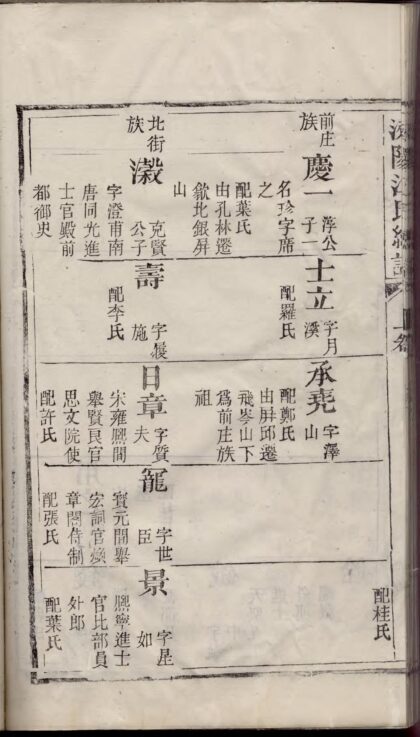 陽江氏
配桂氏
前庄
族
慶一
淳公
子一
名珍字席
之
配葉氏
由孔林遷
歙北銀屏
山
士立
字月
溪
配羅氏
承堯
字澤
山
配鄭氏
由屏邱遷
飛岑山下
爲前庄族
祖
北街
族
克賢
公子
字澄甫南
唐同光進
士官殿前
都御史
壽
字
施
配李氏
日章
字質
夫
宋雍熙間
舉賢良官
思文院使
配許氏
寵
字世
臣
寶元間舉
宏詞官煥
章閣侍制
配張氏
景
字星
如
熙寧進士
官比部員
外郎
配葉氏